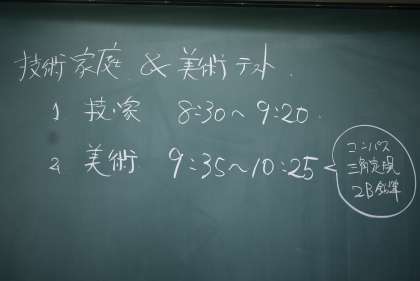 技術家庭 & 美術テスト.
1 技・家 8:30～9:20.
2 美術 9:35～10:25
コンパス
三角定規
2B鉛筆